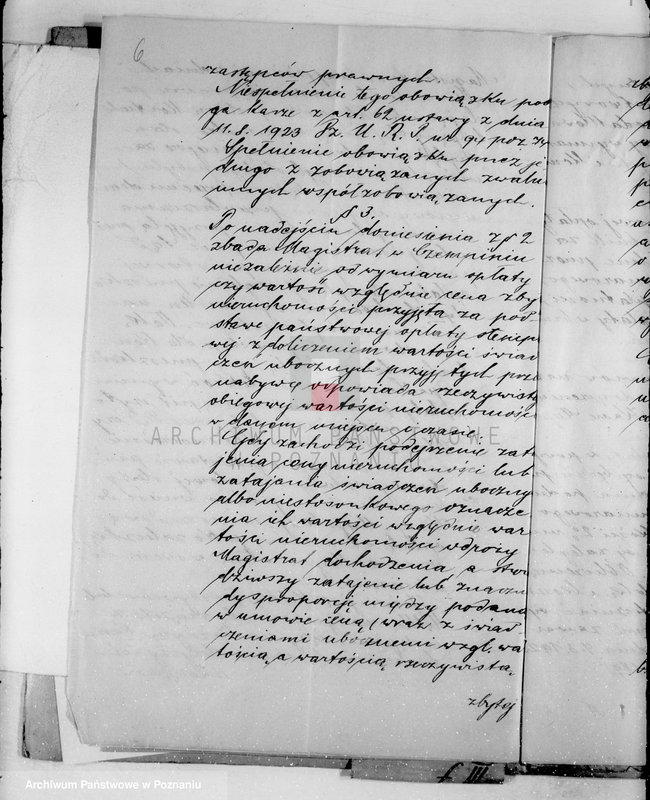 6
zastępców prawnych.
Niespełnienie tego obowiązku pod
ga karze z art. 62 ustawy z dnia
11.8.1923 Dz. U. R. P. nr 94 poz.
Spełnienie obowiązku przez je
dnego z zobowiązanych zwalnia
innych współzobowiązanych.
§ 3.
Po nadejściu doniesienia z § 2
zbada Magistrat w Czempiniu
niezależnie od wymiaru opłaty
czy wartość względnie cena zby
nieruchomości przyjęta za pod
stawę państwowej opłaty stemplo
wej z doliczeniem wartości świad
czeń ubocznych przyjętych prze
nabywcę odpowiada rzeczywiste
obiegowej wartości nieruchomości
w danym miejscu i czasie.
Gdy zachodzi podejrzenie zata
jenia ceny nieruchomości lub
zatajania świadczeń uboczny
albo niestosunkowego oznacze
nia ich wartości względnie war
tości nieruchomości wdroży
Magistrat dochodzenia, a stwier
dziwszy zatajenie lub znaczn
dysproporcję między podaną
w umowie ceną (wraz z świad
czeniami ubocznemi wzgl. wa
tością, a wartością rzeczywistą,
zbytej
ARCHIWUM PAŃSTWOWE
W POZNANIU
Archiwum Państwowe w Poznaniu